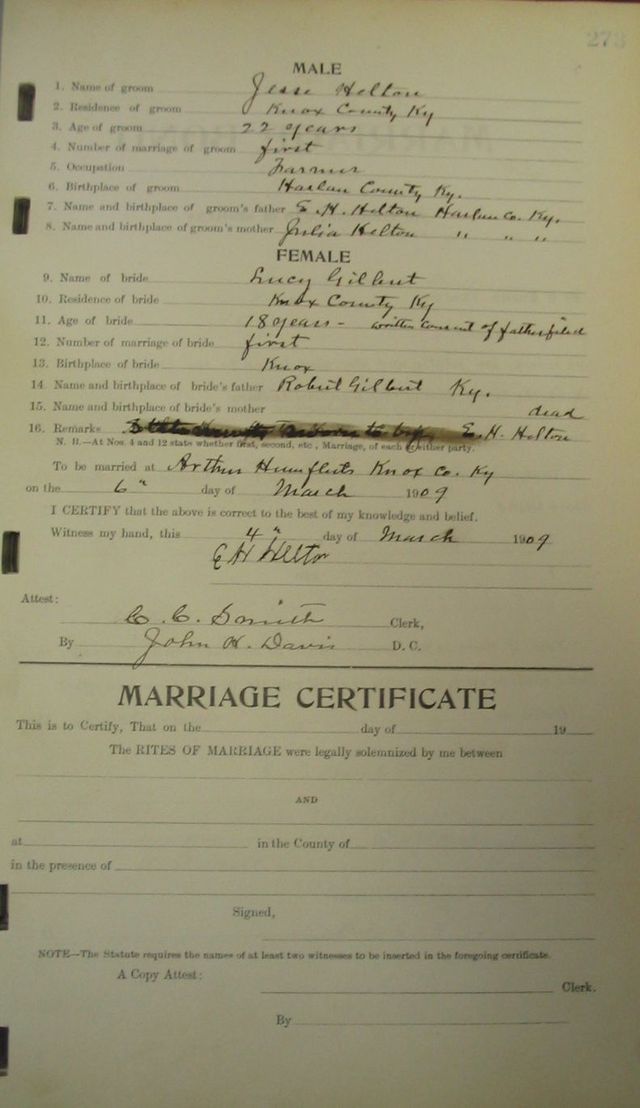 273
MALE
1. Name of groom Jesse Helton
2. Residence of groom Knox County Ky
3. Age of groom 22 years
4. Number of marriage of groom first
5. Occupation Farmer
6. Birthplace of groom Harlan County Ky.
7. Name and birthplace of groom's father E. H. Helton Harlan Co. Ky.
8. Name and birthplace of groom's mother Julia Helton " " "
FEMALE
9. Name of bride Lucy Gilbert
10. Residence of bride Knox County Ky
11. Age of bride 18 years - written consent of father filed
12. Number of marriage of bride first
13. Birthplace of bride Knox
14. Name and birthplace of bride's father Robert Gilbert Ky.
15. Name and birthplace of bride's mother dead
16. Remarks E. H. Helton
N. B.—At Nos. 4 and 12 state whether first, second, etc., Marriage, of each of either party.
To be married at Arthur Knox Co. Ky
on the 6" day of March 1909
I CERTIFY that the above is correct to the best of my knowledge and belief.
Witness my hand, this 4" day of March 1909
E H Helton
Attest:
C. C. Smith Clerk,
By John H. Davis D. C.
MARRIAGE CERTIFICATE
This is to Certify, That on the day of 19
The RITES OF MARRIAGE were legally solemnized by me between
AND
at in the County of
in the presence of
Signed,
NOTE—The Statute requires the names of at least two witnesses to be inserted in the foregoing certificate.
A Copy Attest:
Clerk.
By